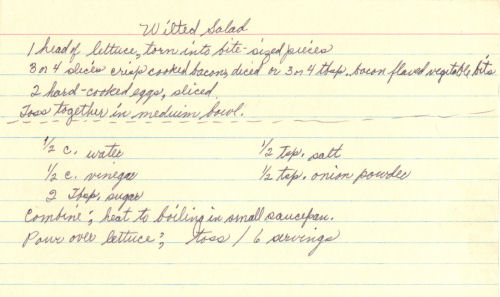 Wilted Salad
1 head of lettuce, torn into bite-sized pieces
3 or 4 slices crisp cooked bacon, diced or 3 or 4 tbsp. bacon flaved vegetable bits
2 hard-cooked eggs, sliced
Toss together in medium bowl.
1/2 c. water 1/2 tsp. salt
1/2 c. vinegar 1/2 tsp. onion powder
2 Tbsp. sugar
Combine; heat to boiling in small saucepan.
Pour over lettuce; toss / 6 servings